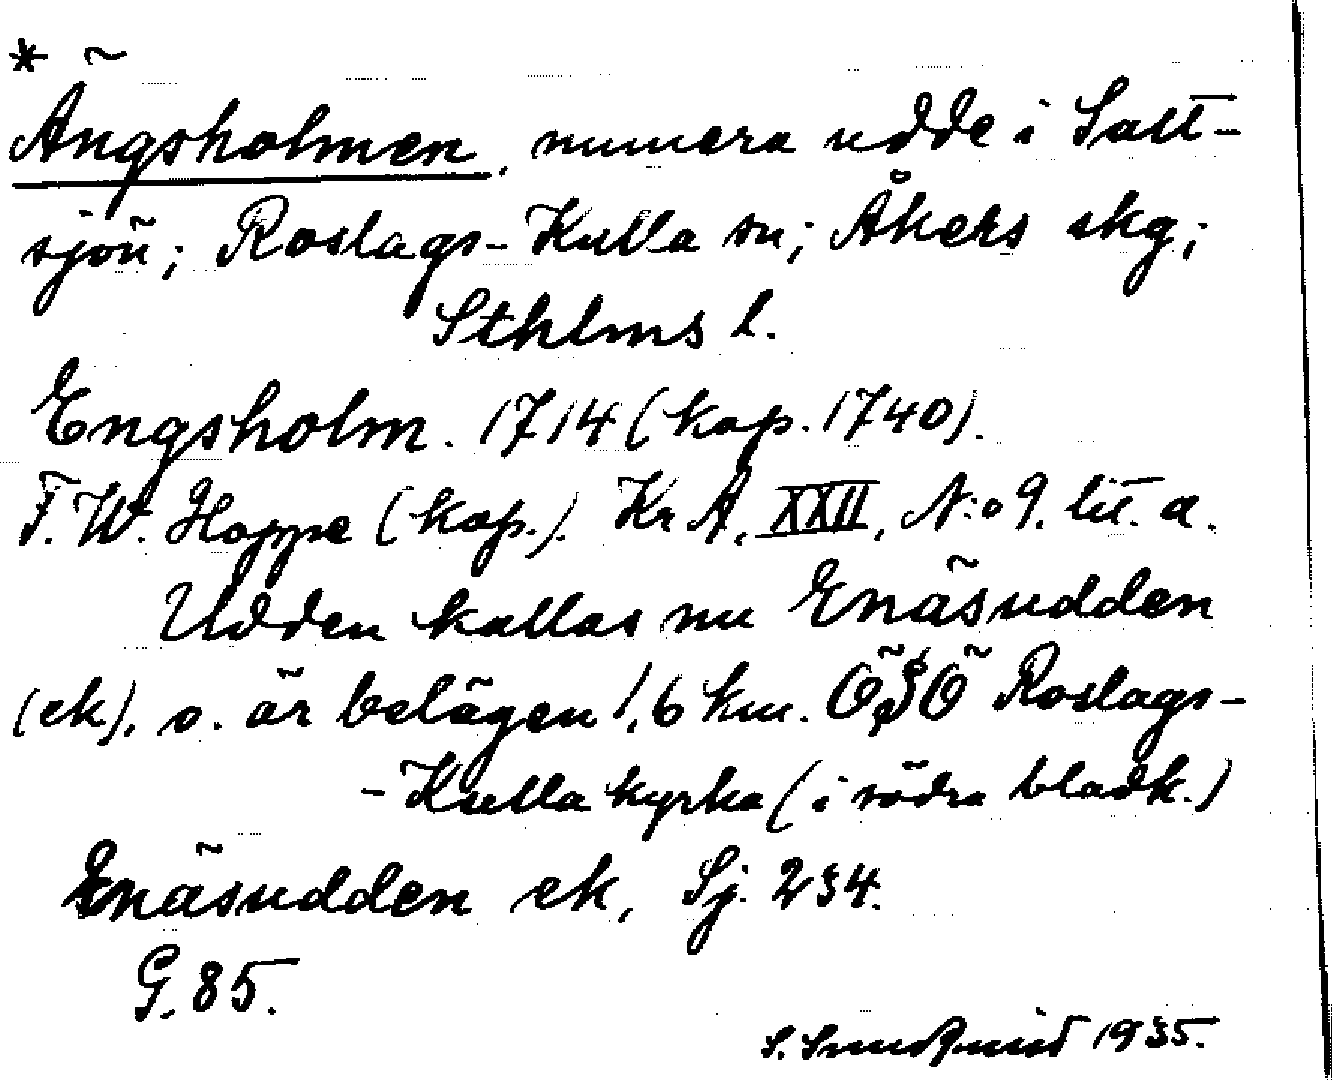 * Ängsholmen, numera udde i Salt-
sjön; Roslags-Kulla sn; Åkers skg;
Sthlms l.
Engsholm. 1714 (kop. 1740).
F. W. Hoppe (kop.). Kr A, XXII, N:o 9. lit. a.
Udden kallas nu Enäsudden
(ek), o. är belägen 1,6 km. ÖSÖ Roslags-
-Kulla kyrka (i södra bladk.)
Enäsudden ek, Sj. 234.
G. 85.
S. Sundqvist 1935.